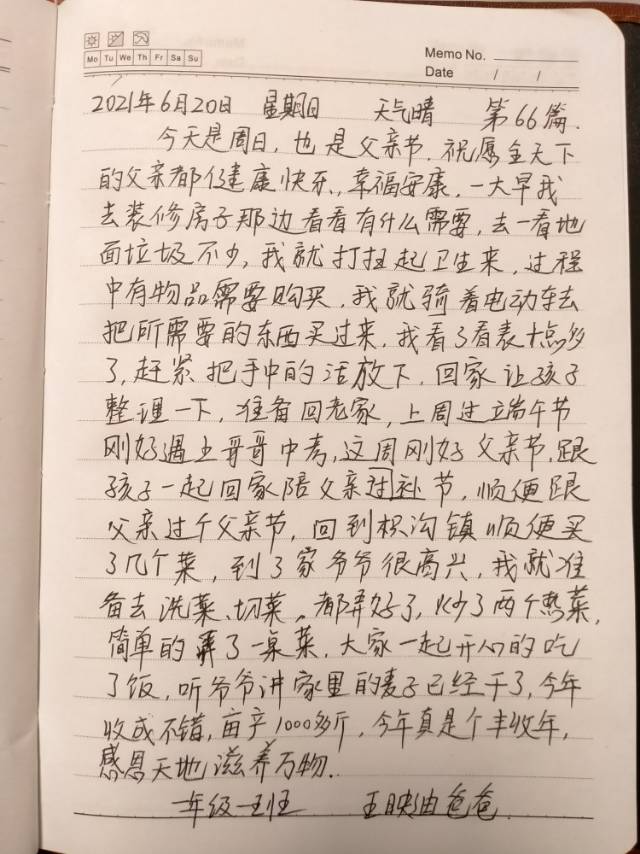 Mo Tu We Th Fr Sa Su
Memo No.
Date / /
2021年6月20日 星期日 天气晴 第66篇.
今天是周日,也是父亲节.祝愿全天下
的父亲都健康快乐,幸福安康,一大早我
去装修房子那边看看有什么需要,去一看地
面垃圾不少,我就打扫起卫生来,过程
中有物品需要购买,我就骑着电动车去
把所需要的东西买过来,我看了看表十点多
了,赶紧把手中的活放下,回家让孩子
整理一下,准备回老家,上周过端午节
刚好遇上哥哥中考,这周刚好父亲节,跟
孩子一起回家陪父亲过补节,顺便跟
父亲过个父亲节,回到枳沟镇顺便买
了几个菜,到了家爷爷很高兴,我就准
备去洗菜、切菜。都弄好了,炒了两个热菜,
简单的弄了一桌菜,大家一起开心的吃
了饭,听爷爷讲家里的麦子已经干了,今年
收成不错,亩产1000多斤,今年真是个丰收年,
感恩天地滋养万物..
一年级一班 王映迪爸爸.